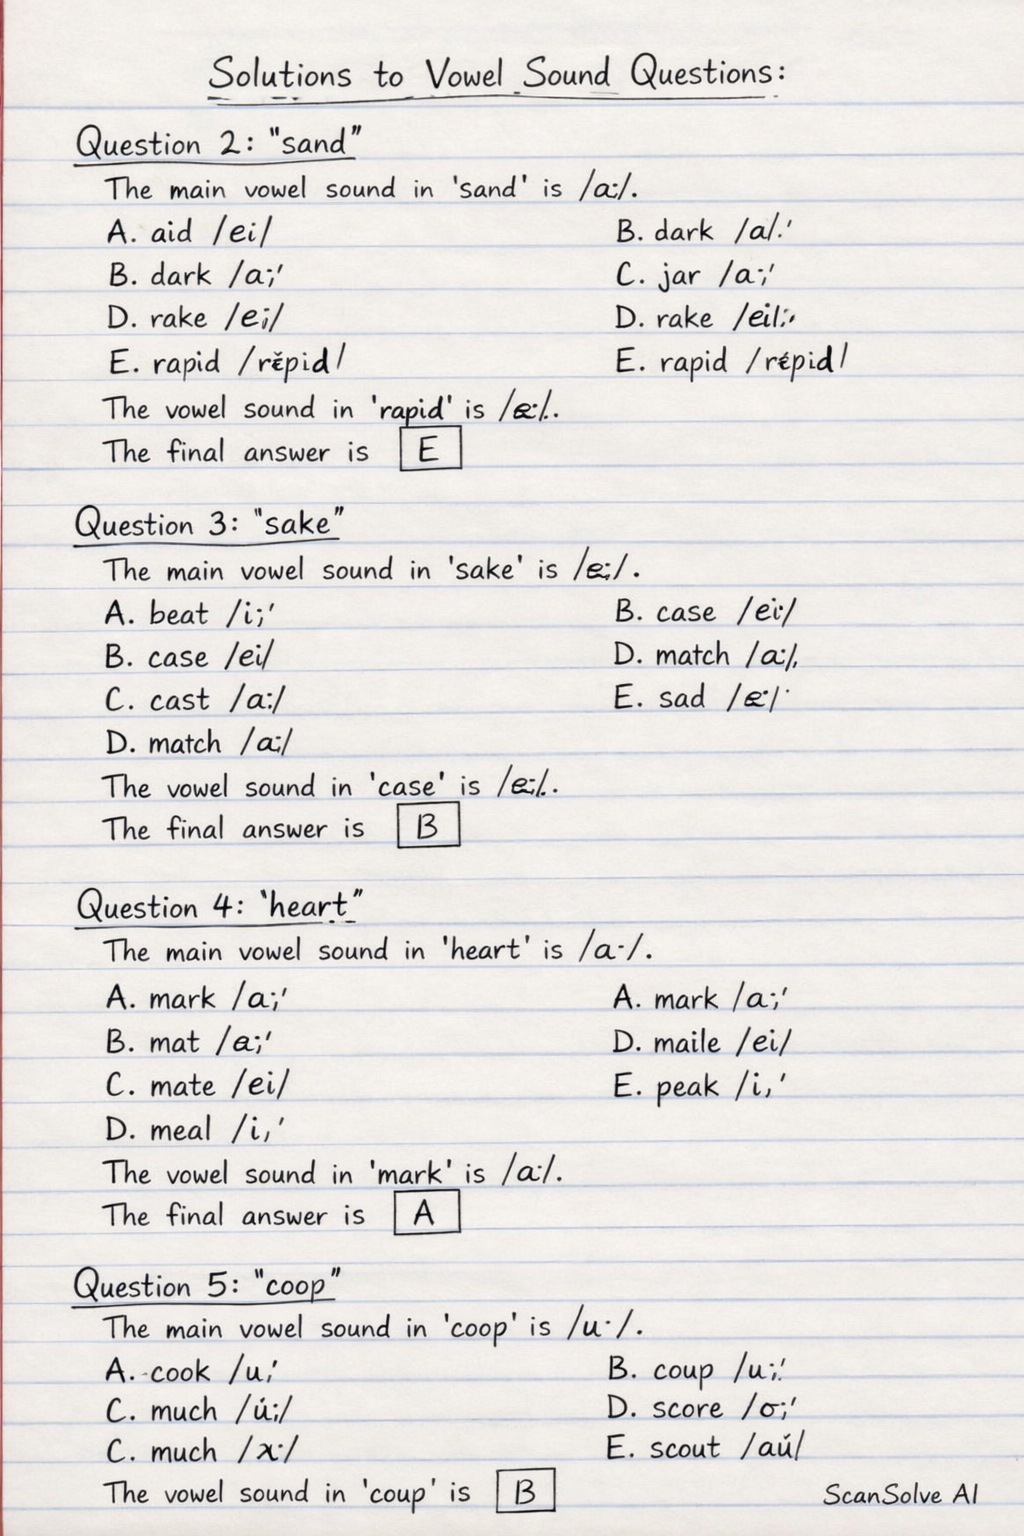 Solutions to Vowel Sound Questions:
Question 2: "sand"
The main vowel sound in 'sand' is /a:/.
A. aid /ei/
B. dark /a/.'
B. dark /a;'
C. jar /a;'
D. rake /ei/
D. rake /eil:,
E. rapid /rĕpid/
E. rapid /répid/
The vowel sound in 'rapid' is /æ:/.
The final answer is E
Question 3: "sake"
The main vowel sound in 'sake' is /e:/.
A. beat /i;'
B. case /ei:/
B. case /ei/
D. match /a:/,
C. cast /a:/
E. sad /æ:/
D. match /a:/
The vowel sound in 'case' is /e:/.
The final answer is B
Question 4: "heart"
The main vowel sound in 'heart' is /a·/.
A. mark /a;'
A. mark /a;'
B. mat /a;'
D. maile /ei/
C. mate /ei/
E. peak /i,'
D. meal /i,'
The vowel sound in 'mark' is /a:/.
The final answer is A
Question 5: "coop"
The main vowel sound in 'coop' is /u·/.
A. cook /u;'
B. coup /u;!
C. much /ú;/
D. score /σ;'
C. much /x·/
E. scout /aú/
The vowel sound in 'coup' is B
ScanSolve AI